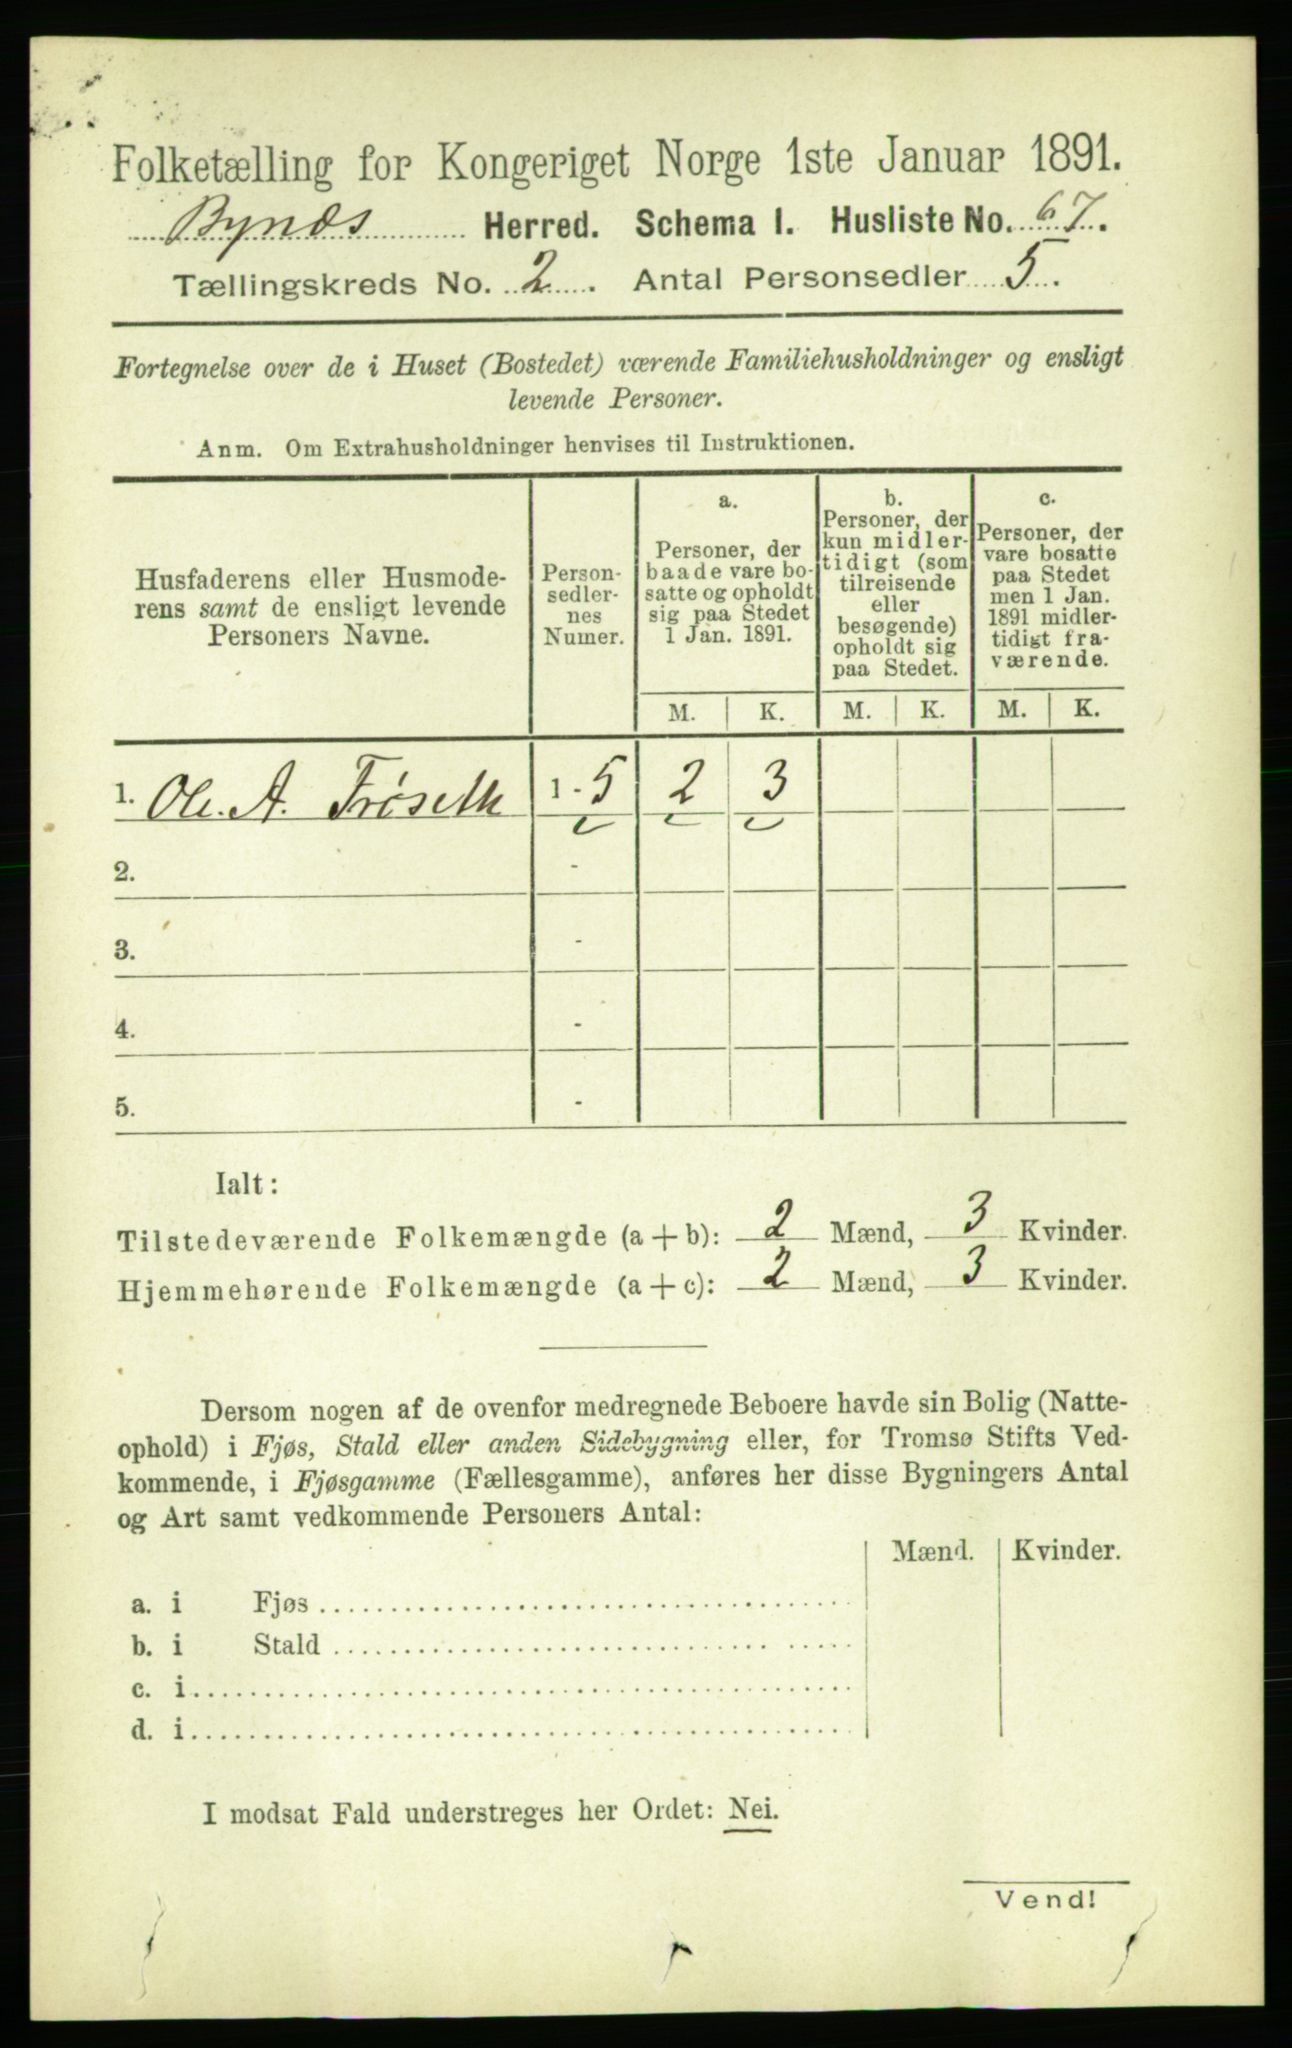 Folketælling for Kongeriget Norge 1ste Januar 1891.
Bynæs Herred. Schema 1. Husliste No. 67.
Tællingskreds No. 2. Antal Personsedler 5.
Fortegnelse over de i Huset (Bostedet) værende Familiehusholdninger og ensligt
levende Personer.
Anm. Om Extrahusholdninger henvises til Instruktionen.
Husfaderens eller Husmode-
rens samt de ensligt levende
Personers Navne.
Person-
sedler-
nes
Numer.
a.
Personer, der
baade vare bo-
satte og opholdt
sig paa Stedet
1 Jan. 1891.
b.
Personer, der
kun midler-
tidigt (som
tilreisende
eller
besøgende)
opholdt sig
paa Stedet.
c.
Personer, der
vare bosatte
paa Stedet
men 1 Jan.
1891 midler-
tidigt fra-
værende.
M. K. M. K. M. K.
1. Ole A. Frøseth 1 - 5 2 3
2. -
3. -
4. -
5. -
Ialt:
Tilstedeværende Folkemængde (a + b): 2 Mænd, 3 Kvinder.
Hjemmehørende Folkemængde (a + c): 2 Mænd, 3 Kvinder.
Dersom nogen af de ovenfor medregnede Beboere havde sin Bolig (Natte-
ophold) i Fjøs, Stald eller anden Sidebygning eller, for Tromsø Stifts Ved-
kommende, i Fjøsgamme (Fællesgamme), anføres her disse Bygningers Antal
og Art samt vedkommende Personers Antal:
Mænd. Kvinder.
a. i Fjøs
b. i Stald
c. i
d. i
I modsat Fald understreges her Ordet: Nei.
Vend!